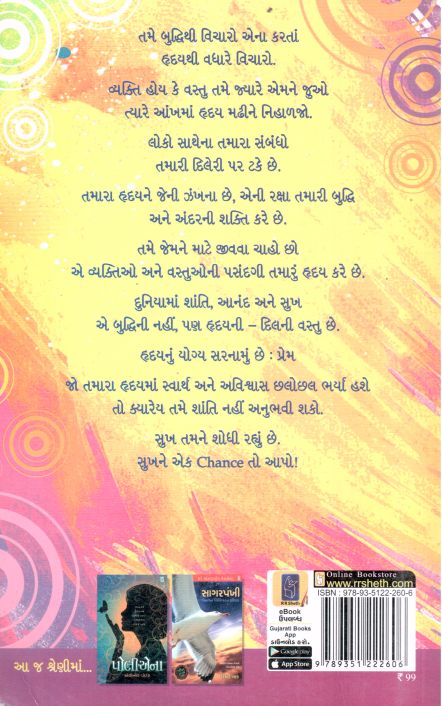 તમે બુદ્ધિથી વિચારો એના કરતાં
હૃદયથી વધારે વિચારો.
વ્યક્તિ હોય કે વસ્તુ તમે જ્યારે એમને જુઓ
ત્યારે આંખમાં હૃદય મઢીને નિહાળજો.
લોકો સાથેના તમારા સંબંધો
તમારી દિલેરી પર ટકે છે.
તમારા હૃદયને જેની ઝંખના છે, એની રક્ષા તમારી બુદ્ધિ
અને અંદરની શક્તિ કરે છે.
તમે જેમને માટે જીવવા ચાહો છો
એ વ્યક્તિઓ અને વસ્તુઓની પસંદગી તમારું હૃદય કરે છે.
દુનિયામાં શાંતિ, આનંદ અને સુખ
એ બુદ્ધિની નહીં, પણ હૃદયની – દિલની વસ્તુ છે.
હૃદયનું યોગ્ય સરનામું છે : પ્રેમ
જો તમારા હૃદયમાં સ્વાર્થ અને અવિશ્વાસ છલોછલ ભર્યા હશે
તો ક્યારેય તમે શાંતિ નહીં અનુભવી શકો.
સુખ તમને શોધી રહ્યું છે.
સુખને એક Chance તો આપો!
આ જ શ્રેણીમાં...
પોલીએના
સાગરપંખી
RRSheth
eBook
ઉપલબ્ધ
Gujarati Books
App
ડાઉનલોડ કરો.
Google play
App Store
Online Bookstore
www.rrsheth.com
ISBN : 978-93-5122-260-6
9 789351 222606
₹ 99